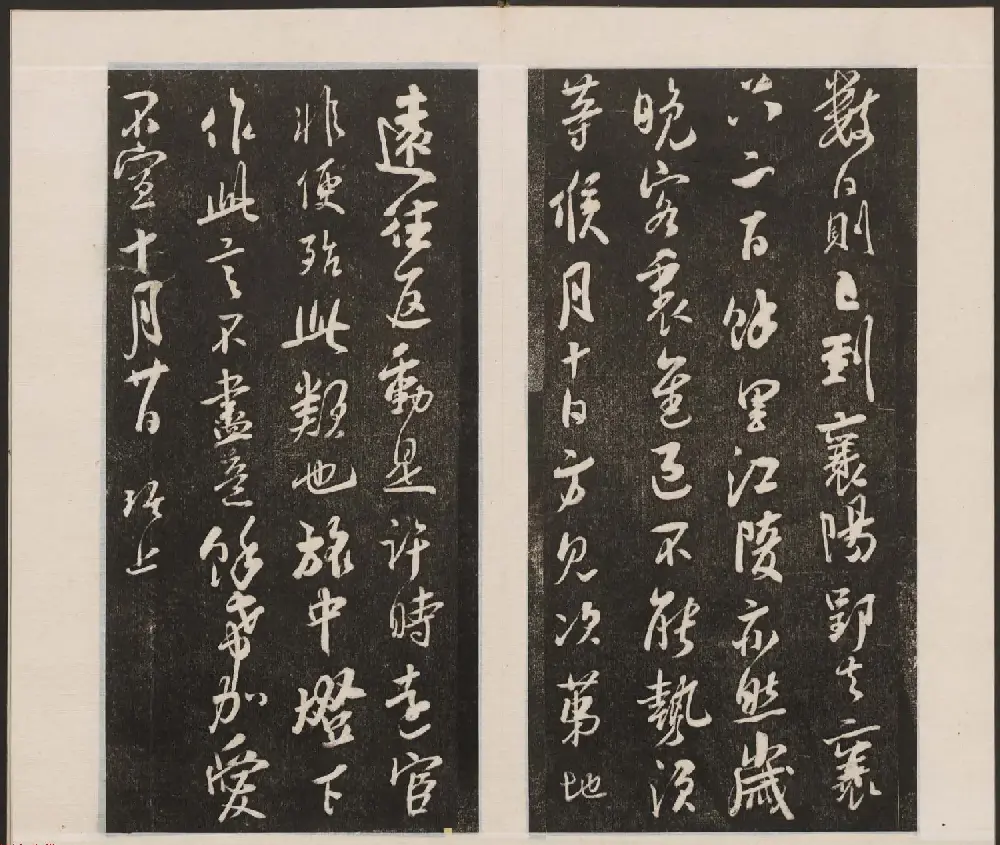 數日則已到襄陽郢去襄
六二百餘里江陵亦然歲
晚客裏冤迫不能熱須
等候月十日方見次第地
遠往返動是許時走官
非便殆此類也旅中燈下
作此言不盡意餘希加愛
不宣十月廿日 珪上